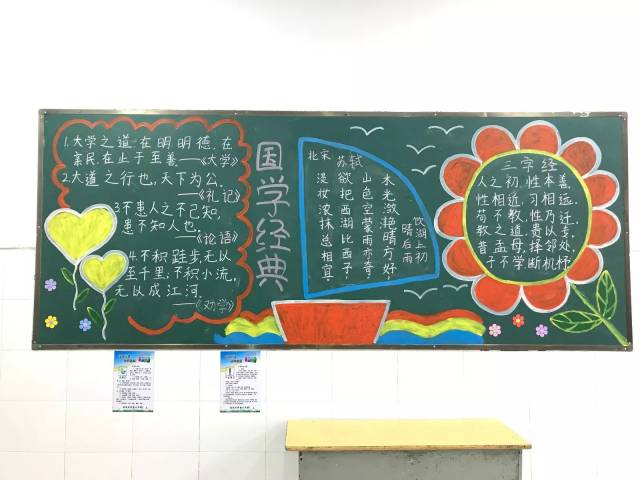 1.大学之道,在明明德,在
亲民,在止于至善.——《大学》
2.大道之行也,天下为公.
——《礼记》
3.不患人之不己知,
患不知人也.
——《论语》
4.不积跬步,无以
至千里,不积小流,
无以成江河.
——《劝学》
国学经典
饮湖上初
晴后雨
北宋 苏轼
水光潋滟晴方好,
山色空蒙雨亦奇.
欲把西湖比西子,
淡妆浓抹总相宜.
三字经
人之初,性本善.
性相近,习相远.
苟不教,性乃迁.
教之道,贵以专.
昔孟母,择邻处
子不学,断机杼